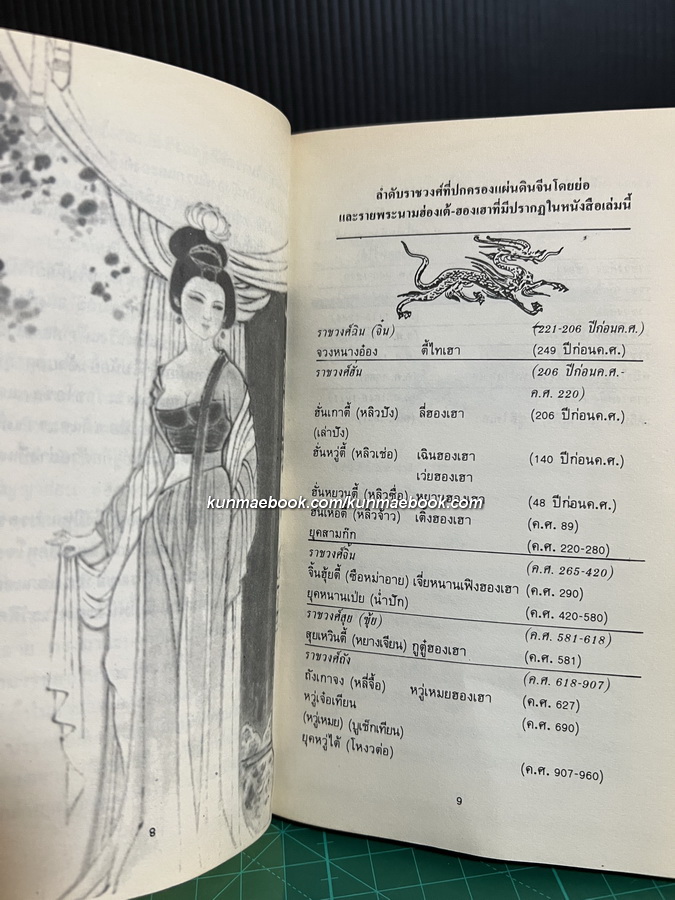 ลำดับราชวงศ์ที่ปกครองแผ่นดินจีนโดยย่อ
และรายพระนามฮ่องเต้-ฮองเฮาที่มีปรากฏในหนังสือเล่มนี้
ราชวงศ์ฉิน (จิ๋น) (221-206 ปีก่อนค.ศ.)
จวงหนางอ๋อง ตี้ไทเฮา (249 ปีก่อนค.ศ.)
ราชวงศ์ฮั่น (206 ปีก่อนค.ศ.-
ค.ศ. 220)
ฮั่นเกาตี้ (หลิวปัง) ลี่ฮองเฮา (206 ปีก่อนค.ศ.)
(เล่าปัง)
ฮั่นหวู่ตี้ (หลิวเช่อ) เฉินฮองเฮา (140 ปีก่อนค.ศ.)
เว่ยฮองเฮา
ฮั่นหยวนตี้ (หลิวซื่อ) หยวนฮองเฮา (48 ปีก่อนค.ศ.)
kunmaebook.com/kunmaebook.com
ฮั่นเหอตี้ (หลิวจ้าว) เติ้งฮองเฮา (ค.ศ. 89)
ยุคสามก๊ก (ค.ศ. 220-280)
ราชวงศ์จิ้น (ค.ศ. 265-420)
จิ้นฮุ้ยตี้ (ซือหม่าอาย) เจี่ยหนานเฟิงฮองเฮา (ค.ศ. 290)
ยุคหนานเป่ย (น่ำปัก) (ค.ศ. 420-580)
ราชวงศ์สุย (ซุ้ย) (ค.ศ. 581-618)
สุยเหวินตี้ (หยางเจียน) กูตู๋ฮองเฮา (ค.ศ. 581)
ราชวงศ์ถัง (ค.ศ. 618-907)
ถังเกาจง (หลี่จื้อ) หวู่เหมยฮองเฮา (ค.ศ. 627)
หวู่เจ๋อเทียน (ค.ศ. 690)
(หวู่เหมย) (บูเช็กเทียน)
ยุคหวู่ได้ (โหงวต่อ)
(ค.ศ. 907-960)
9
8